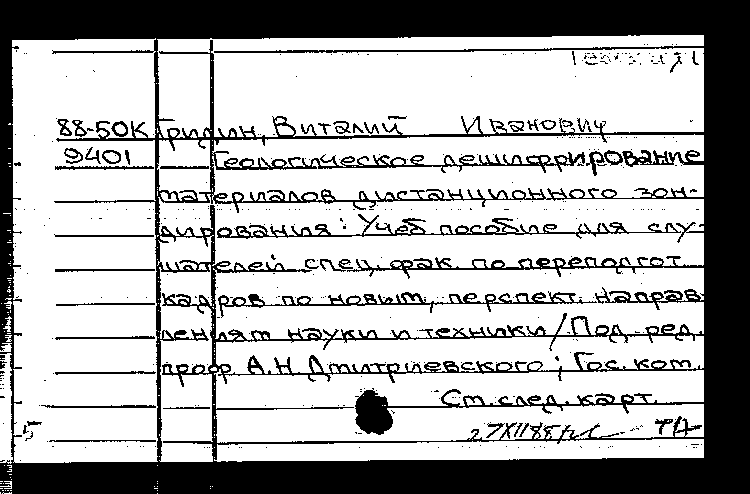 88-50К Гридин, Виталий Иванович
9401 Геологическое дешифрирование
материалов дистанционного зон-
дирования: Учеб пособие для слу-
шателей спец. фак. по переподгот.
кадров по новым, перспект. направ-
лениям науки и техники / Под ред.
проф А.Н Дмитриевского; Гос. ком.
См. след. карт.
5 27XII88